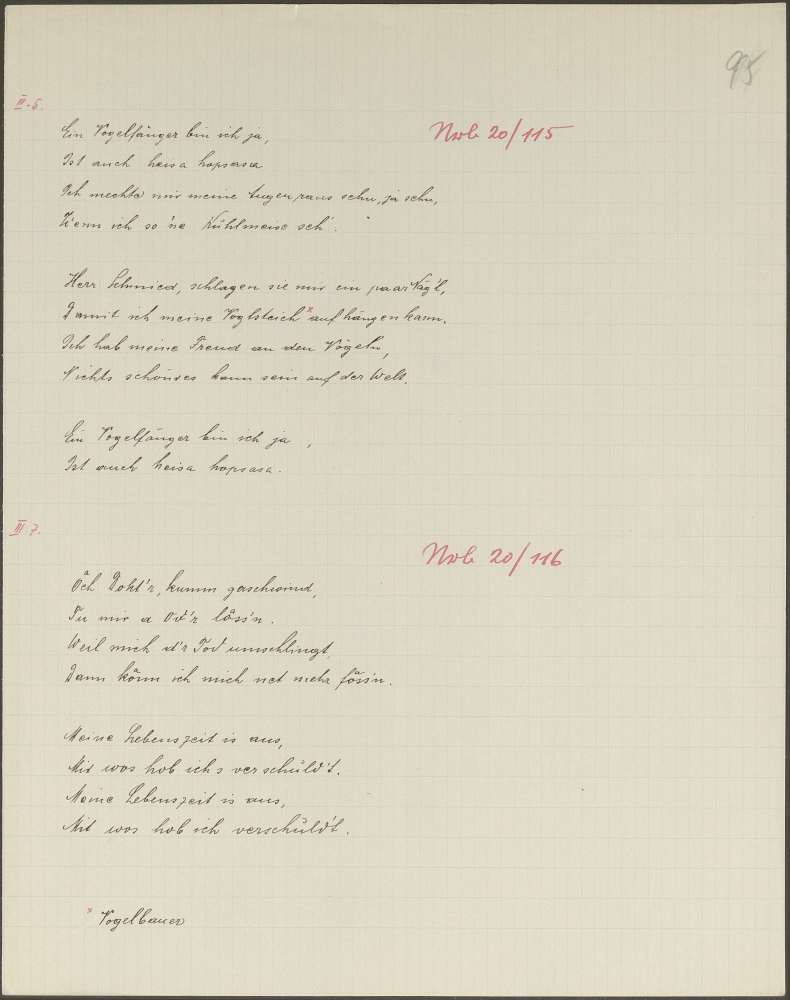 95
III. 5.
Nrb 20/115
Ein Vogelfänger bin ich ja,
Ist auch heisa hopsasa
Ich mechte mir meine Augen raus sehn, ja sehn,
Wenn ich so 'ne Kühlmeise seh'.
Herr Schmied, schlagen sie mir ein paar Näg'l,
Damit ich meine Voglsteich* aufhängen kann.
Ich hab meine Freud an den Vögeln,
Nichts schön'res kann sein auf der Welt.
Ein Vogelfänger bin ich ja,
Ist auch heisa hopsasa.
III. 7.
Nrb 20/116
Öch Dokt'r, kumm gaschwind,
Tu mir a Od'r löss'n.
Weil mich d'r Tod umschlingt,
Dann könn ich mich net mehr föss'n.
Meine Lebenszeit is aus,
Mit wos hob ichs verschüld't.
Meine Lebenszeit is aus,
Mit wos hob ich verschüld't.
* Vogelbauer